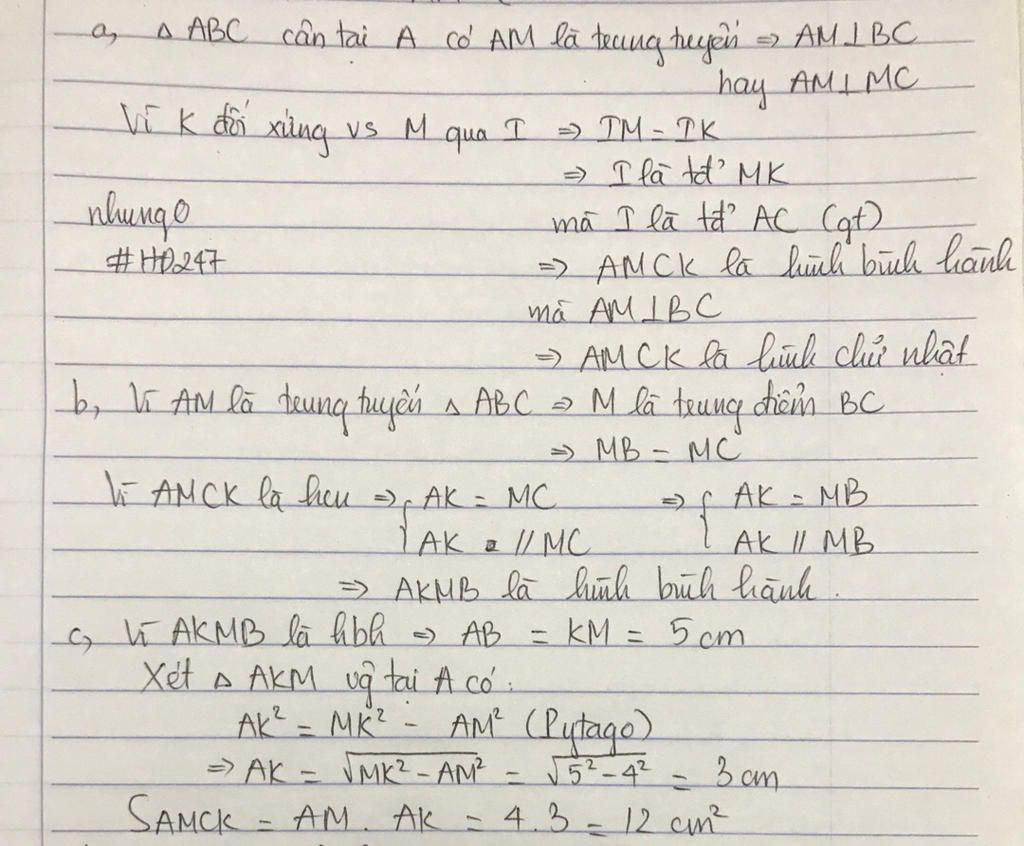 a, △ ABC cân tại A có AM là trung tuyến ⇒ AM⊥BC
hay AM⊥MC
Vì K đối xứng vs M qua I ⇒ IM = IK
⇒ I là tđ' MK
nhung0
mà I là tđ' AC (gt)
#HĐ247
⇒ AMCK là hình bình hành
mà AM⊥BC
⇒ AMCK là hình chữ nhật
b, Vì AM là trung tuyến △ ABC ⇒ M là trung điểm BC
⇒ MB = MC
Vì AMCK là hcn ⇒ { AK = MC ⇒ { AK = MB
AK // MC AK // MB
⇒ AKMB là hình bình hành.
c, Vì AKMB là hbh ⇒ AB = KM = 5 cm
Xét △ AKM vg tại A có:
AK² = MK² - AM² (Pytago)
⇒ AK = √(MK² - AM²) = √(5² - 4²) = 3 cm
SAMCK = AM. AK = 4.3 = 12 cm²